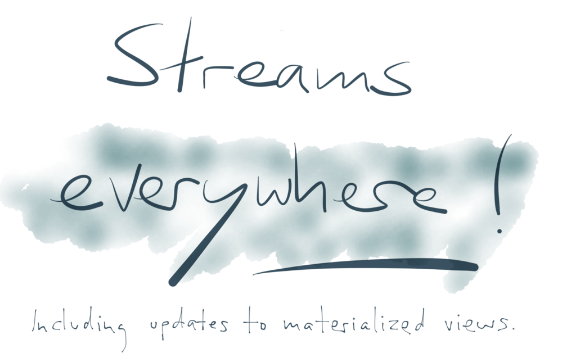 Streams
everywhere!
Including updates to materialized views.